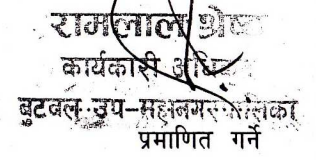 रामलाल श्रेष्ठ
कार्यकारी अधिकृत
बुटवल उप-महानगरपालिका
प्रमाणित गर्ने